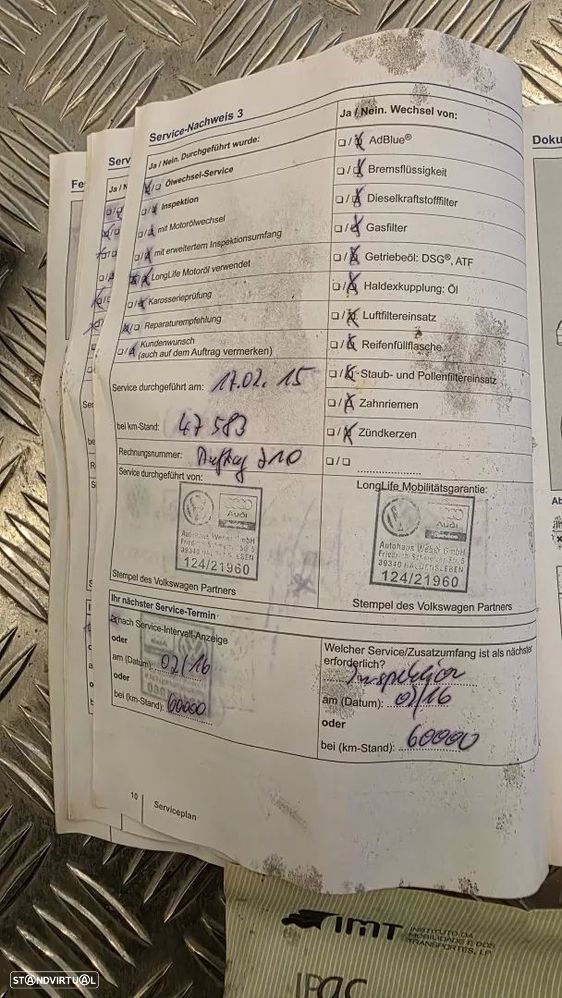 Service-Nachweis 3
Ja / Nein. Durchgeführt wurde:
Ölwechsel-Service
Inspektion
mit Motorölwechsel
mit erweitertem Inspektionsumfang
LongLife Motoröl verwendet
Karosserieprüfung
Reparaturempfehlung
Kundenwunsch
(auch auf dem Auftrag vermerken)
Service durchgeführt am: 17.02.15
bei km-Stand: 47 583
Rechnungsnummer: Auftrag
Service durchgeführt von:
Audi
Service
Autohaus Weber GmbH
39340 HALDENSLEBEN
124/21960
Stempel des Volkswagen Partners
Ja / Nein. Wechsel von:
AdBlue®
Bremsflüssigkeit
Dieselkraftstofffilter
Gasfilter
Getriebeöl: DSG®, ATF
Haldexkupplung: Öl
Luftfiltereinsatz
Reifenfüllflasche
Staub- und Pollenfiltereinsatz
Zahnriemen
Zündkerzen
LongLife Mobilitätsgarantie:
Audi
Service
Autohaus Weber GmbH
39340 HALDENSLEBEN
124/21960
Stempel des Volkswagen Partners
Ihr nächster Service-Termin
nach Service-Intervall-Anzeige
oder
am (Datum): 02/16
oder
bei (km-Stand): 60000
Welcher Service/Zusatzumfang ist als nächster
erforderlich?
Inspektion
am (Datum): 02/16
oder
bei (km-Stand): 60000
10 Serviceplan
Doku
IMT INSTITUTO DA
MOBILIDADE E DOS
TRANSPORTES, I.P.
STANDVIRTUAL